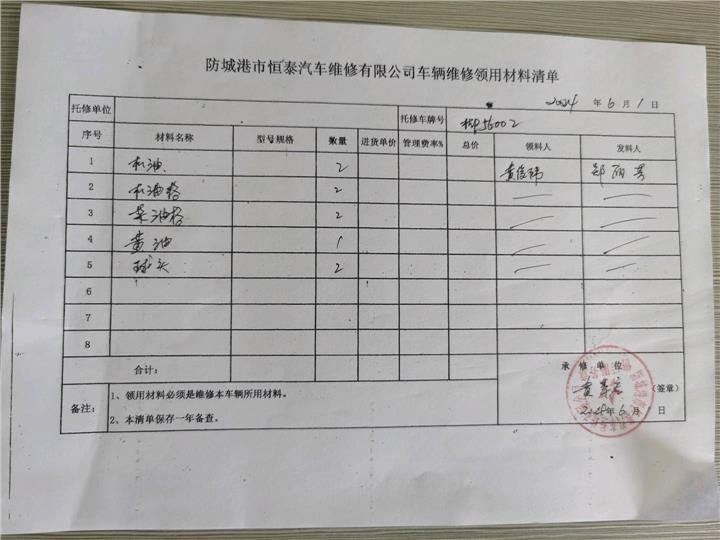 防城港市恒泰汽车维修有限公司车辆维修领用材料清单
2024 年 6 月 1 日
托修单位 托修车牌号
序号 材料名称 型号规格 数量 进货单价 管理费率% 总价 领料人 发料人
1 机油 2
2 机油格 2
3 柴油格 2
4 黄油 1
5 球头 2
6
7
8
合计:
承 修 单 位
备注: 1、领用材料必须是维修本车辆所用材料。
(签章)
2、本清单保存一年备查。
2024年 6 月 1 日